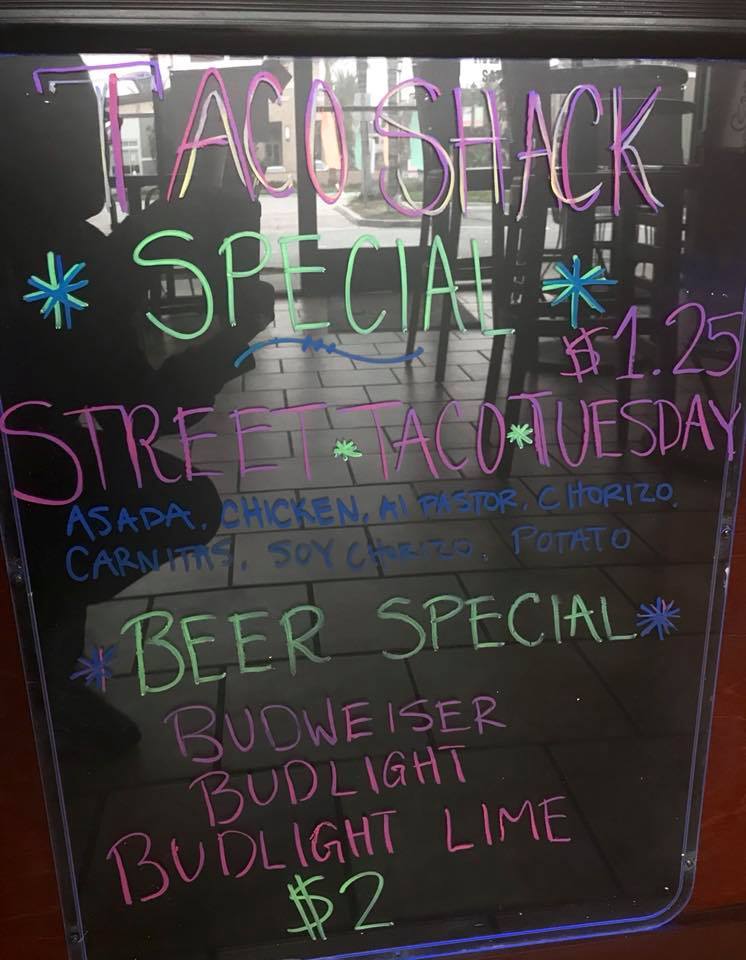 TACO SHACK
SPECIAL
$1.25
STREET TACO TUESDAY
ASADA, CHICKEN, Al PASTOR, CHORIZO,
CARNITAS, SOY CHORIZO, POTATO
BEER SPECIAL
BUDWEISER
BUDLIGHT
BUDLIGHT LIME
$2